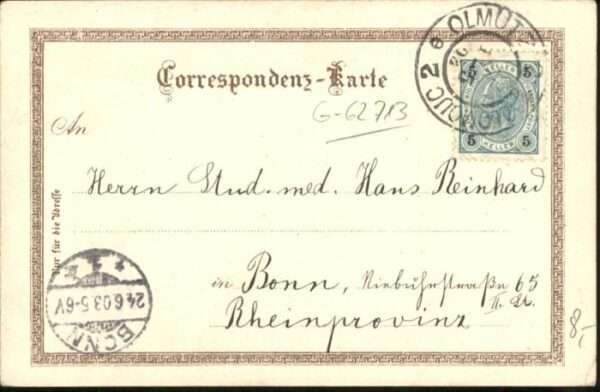 Correspondenz-Karte
G-62713
An
Herrn Stud. med. Hans Reinhard
in Bonn, Niebuhrstraße 65
II. Et.
Rheinprovinz
Nur für die Adresse
OLMÜTZ
OLOMOUC 2
6
5 5
HELLER
5 5
HELLER
BONN
24.6.03.5-6V
* 1 *
8,-